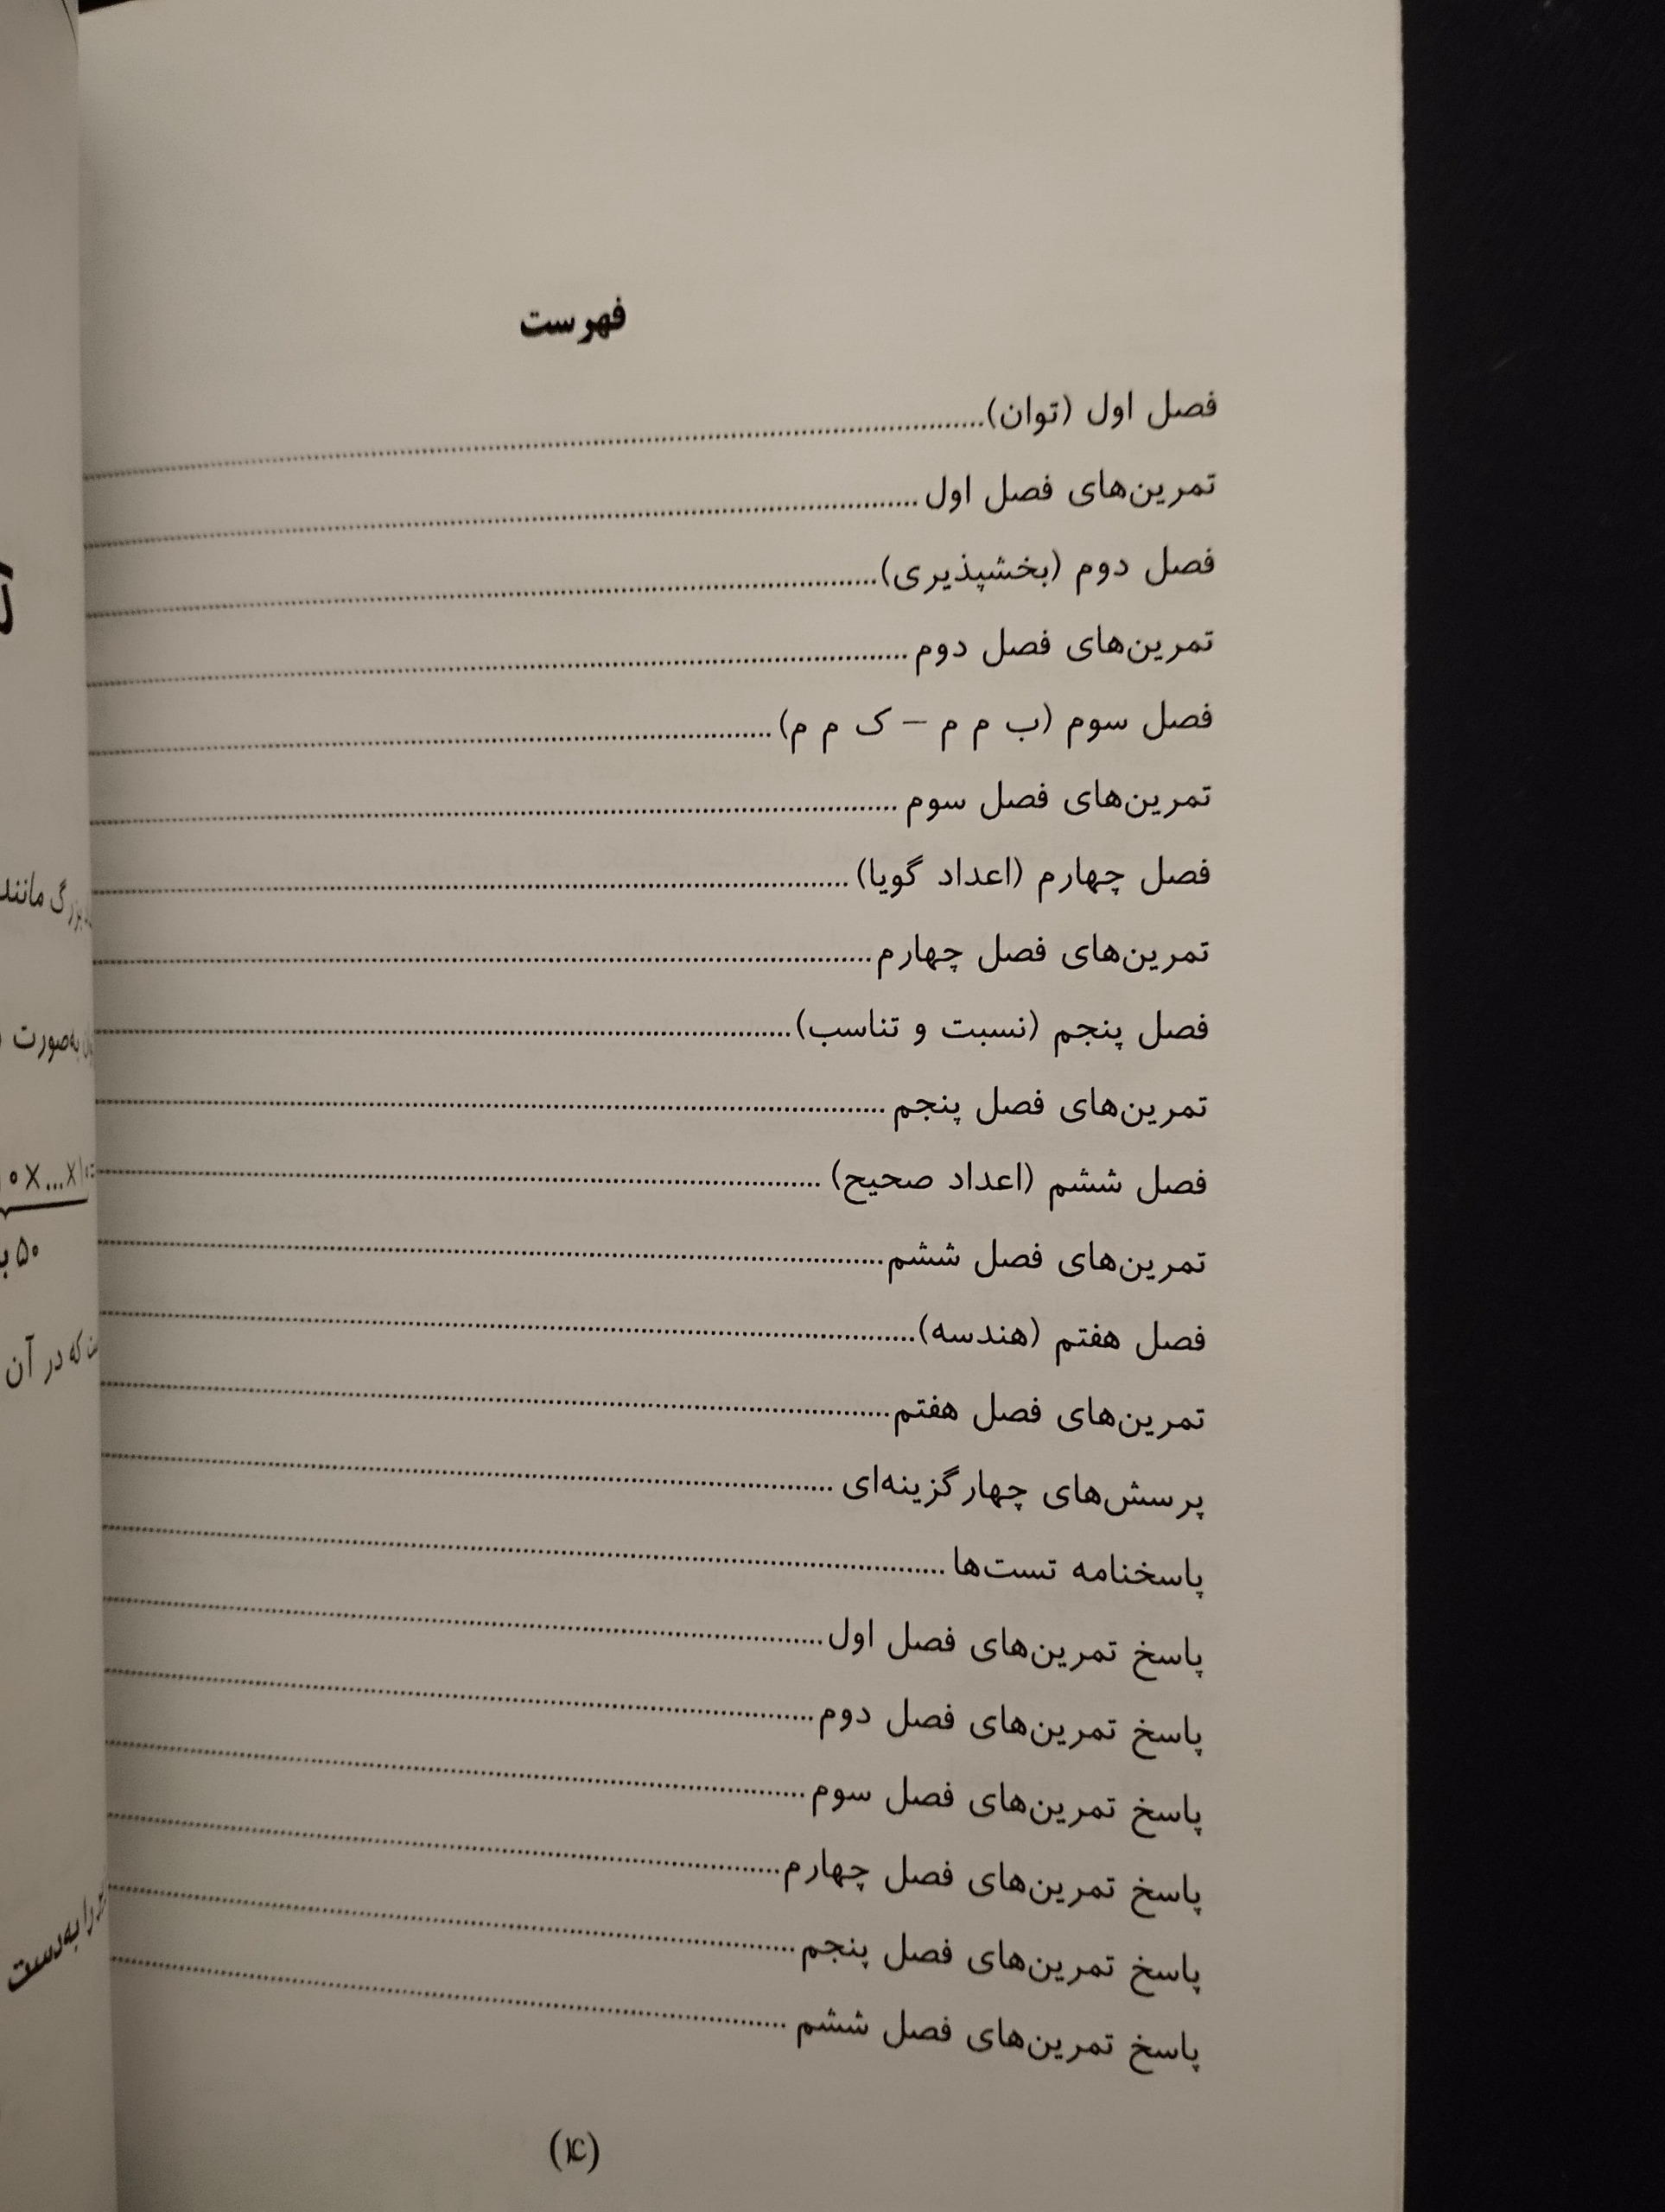 فهرست
فصل اول (توان)
تمرین‌های فصل اول
فصل دوم (بخشپذیری)
تمرین‌های فصل دوم
فصل سوم (ب م م – ک م م)
تمرین‌های فصل سوم
فصل چهارم (اعداد گویا)
تمرین‌های فصل چهارم
فصل پنجم (نسبت و تناسب)
تمرین‌های فصل پنجم
فصل ششم (اعداد صحیح)
تمرین‌های فصل ششم
فصل هفتم (هندسه)
تمرین‌های فصل هفتم
پرسش‌های چهارگزینه‌ای
پاسخنامه تست‌ها
پاسخ تمرین‌های فصل اول
پاسخ تمرین‌های فصل دوم
پاسخ تمرین‌های فصل سوم
پاسخ تمرین‌های فصل چهارم
پاسخ تمرین‌های فصل پنجم
پاسخ تمرین‌های فصل ششم
(۴)
بزرگ مانند
به‌صورت
۵۰
که در آن
را به‌دست